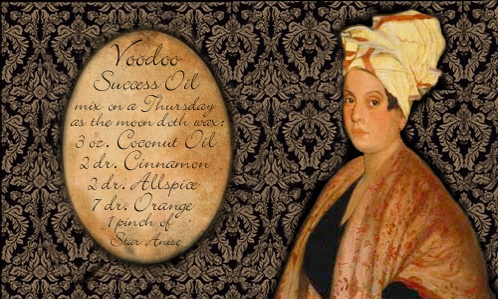 Voodoo
Success Oil
mix on a Thursday
as the moon doth wax:
3 oz. Coconut Oil
2 dr. Cinnamon
2 dr. Allspice
7 dr. Orange
1 pinch of
Star Anise